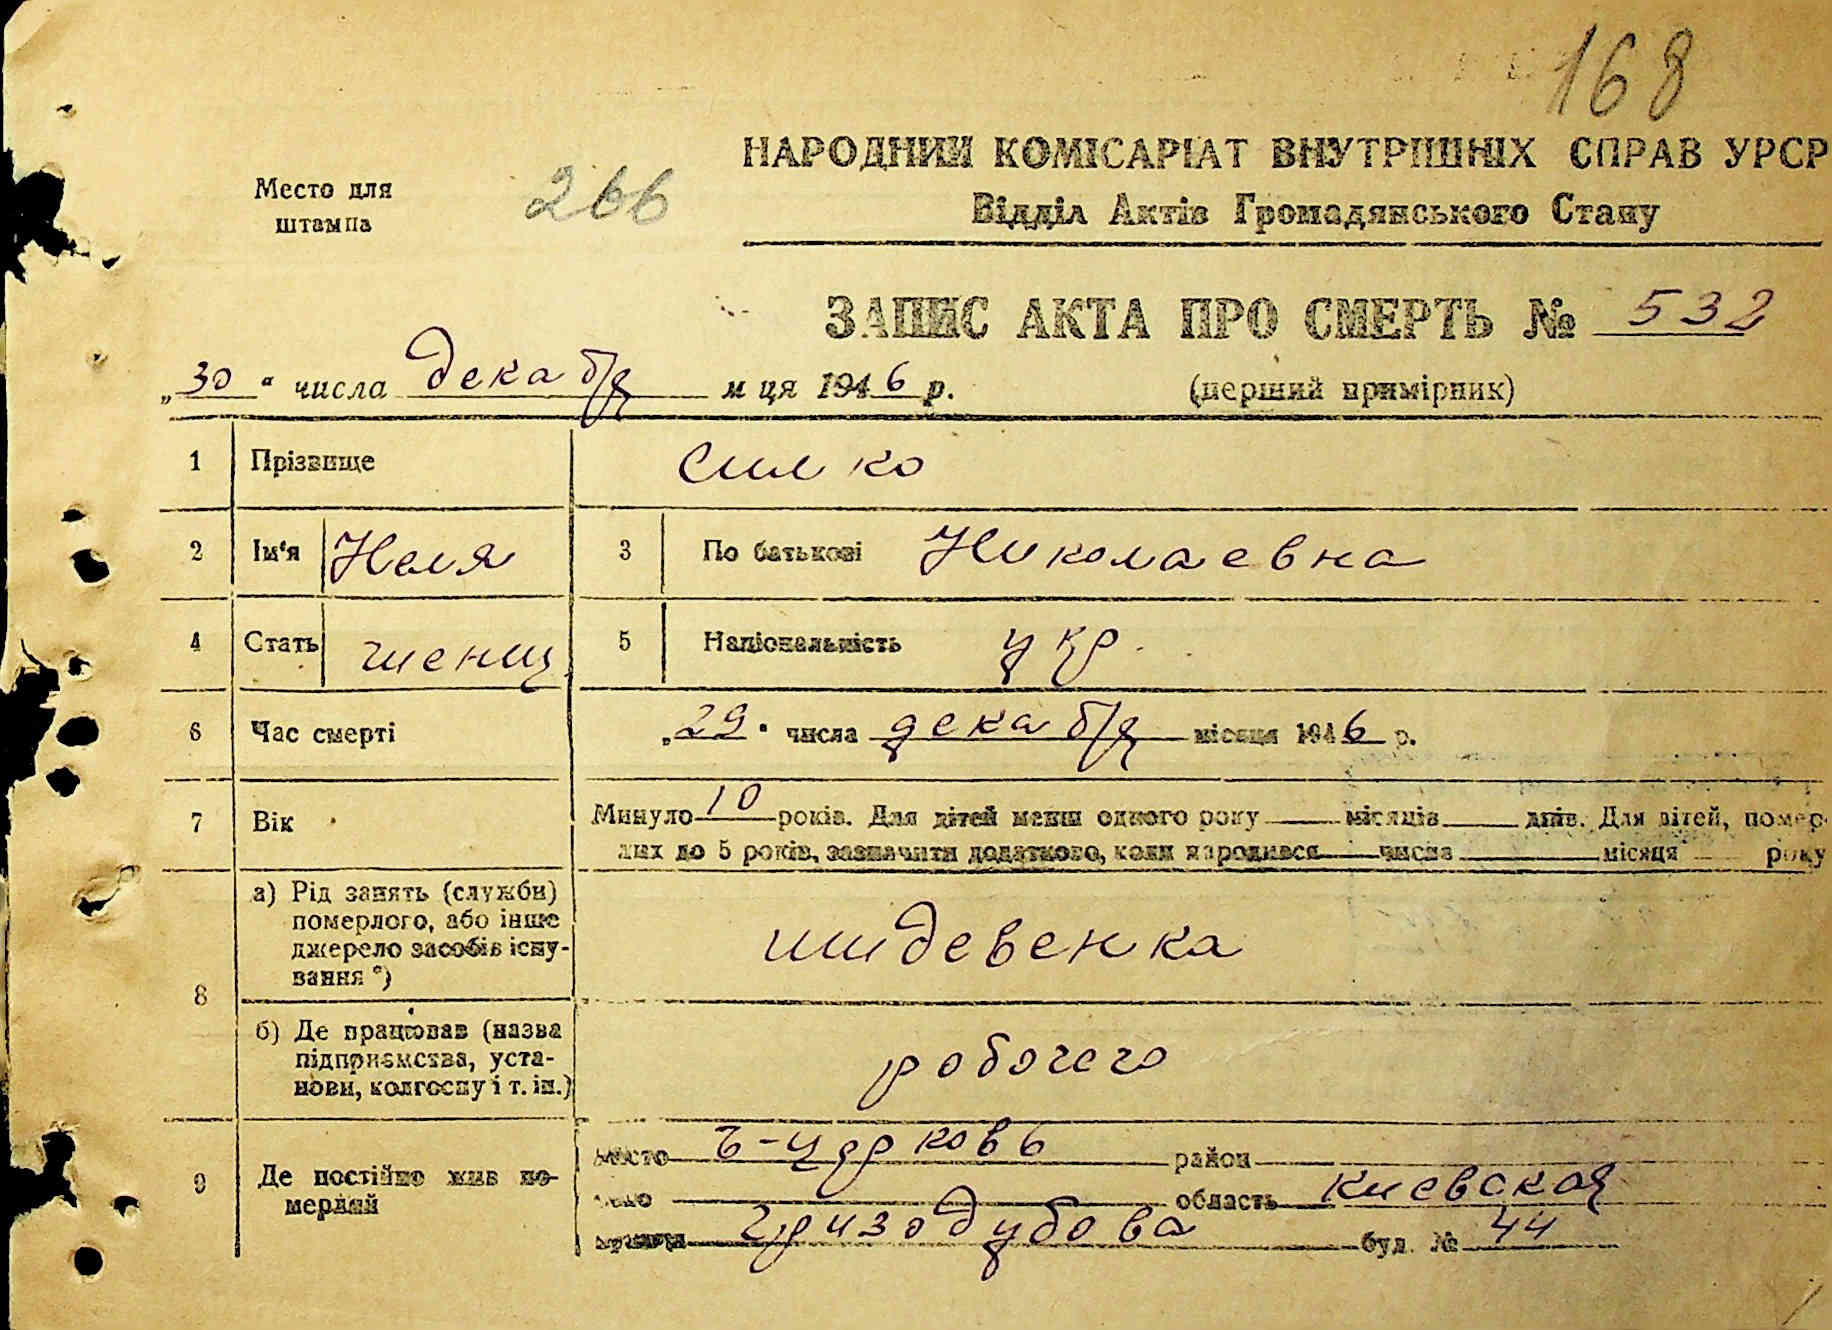 168
НАРОДНИЙ КОМІСАРІАТ ВНУТРІШНІХ СПРАВ УРСР
Место для
штампа
266
Відділ Актів Громадянського Стану
ЗАПИС АКТА ПРО СМЕРТЬ № 532
„30" числа декабря м ця 1946 р. (перший примірник)
1 Прізвище Силко
2 Ім'я Неля 3 По батькові Николаевна
4 Стать женщ 5 Національність укр.
6 Час смерті „29" числа декабря місяця 1946 р.
7 Вік Минуло 10 років. Для дітей менш одного року місяців днів. Для дітей, помер-
лих до 5 років, зазначити додатково, коли народився числа місяця року
8 а) Рід занять (служби)
померлого, або інше
джерело засобів існу-
вання *)
иждевенка
б) Де працював (назва
підприємства, уста-
нови, колгоспу і т. ін.)
робочего
9 Де постійно жив по-
мерлий
место Б-Церковь район
село область Киевская
вулиця Гризодубова буд. № 44